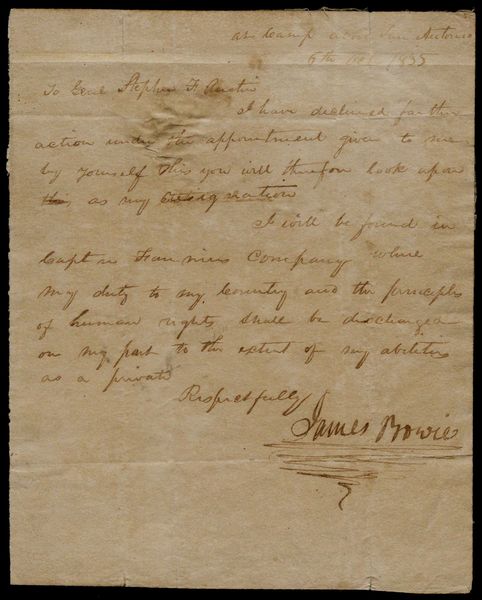 at Camp above San Antonio
6th Nov 1835
To Genl Stephen F Austin
I have declined further
action under the appointment given to me
by yourself this you will therefore look upon
this as my resignation
I will be found in
Capt n Fannins Company where
my duty to my Country and the principles
of human rights shall be discharged
on my part to the extent of my abilities
as a private
Respectfully
James Bowie